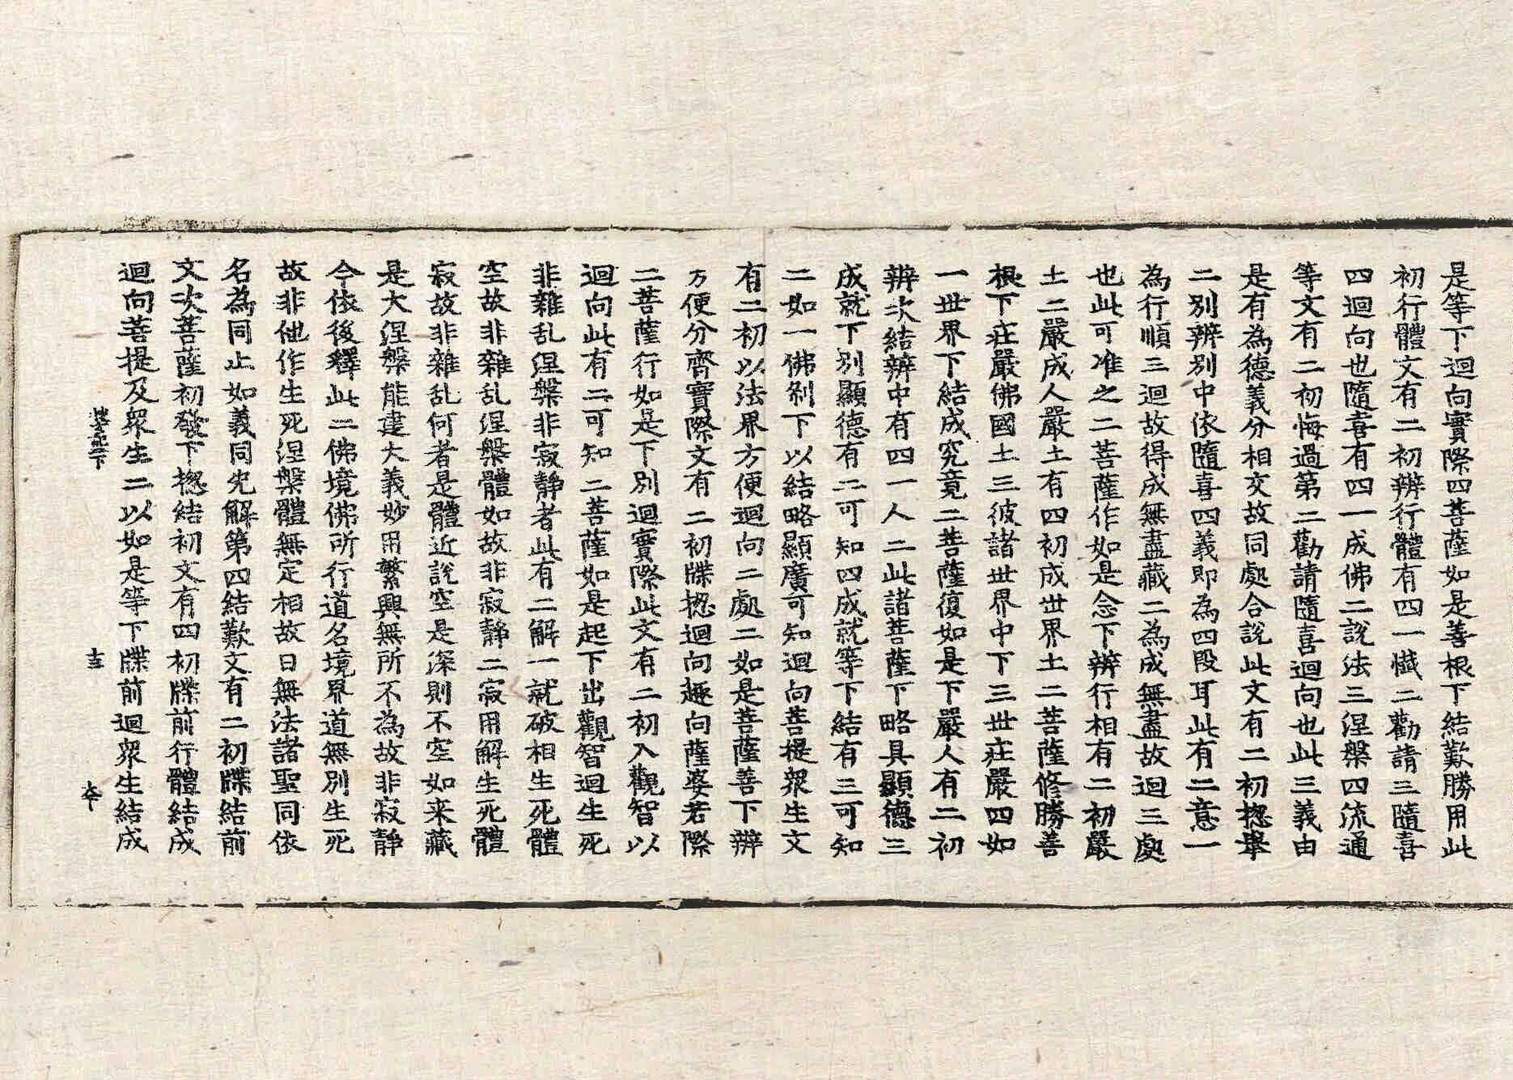 是等下迴向實際四菩薩如是善根下結歎勝用此
初行體文有二初辨行體有四一懺二勸請三隨喜
四迴向也隨喜有四一成佛二說法三涅槃四流通
等文有二初悔過第二勸請隨喜迴向也此三義由
是有為德義分相交故同處合說此文有二初揔舉
二別辨別中依隨喜四義即為四段耳此有二意一
為行順三迴故得成無盡藏二為成無盡故迴三處
也此可准之二菩薩作如是念下辨行相有二初嚴
土二嚴成人嚴土有四初成世界土二菩薩修勝善
根下莊嚴佛國土三彼諸世界中下三世莊嚴四如
一世界下結成究竟二菩薩復如是下嚴人有二初
辨次結辨中有四一人二此諸菩薩下略具顯德三
成就下別顯德有二可知四成就等下結有三可知
二如一佛刹下以結略顯廣可知迴向菩提衆生文
有二初以法界方便迴向二處二如是菩薩善下辨
方便分齊實際文有二初牒揔迴向趣向薩婆若際
二菩薩行如是下別迴實際此文有二初入觀智以
迴向此有二可知二菩薩如是起下出觀智迴生死
非雜乱涅槃非寂靜者此有二解一就破相生死體
空故非雜乱涅槃體如故非寂靜二寂用解生死體
寂故非雜乱何者是體近說空是深則不空如来藏
是大涅槃能建大義妙用繁興無所不為故非寂靜
今依後釋此二佛境佛所行道名境界道無別生死
故非他作生死涅槃體無定相故曰無法諸聖同依
名為同止如義同先解第四結歎文有二初牒結前
文次菩薩初發下揔結初文有四初牒前行體結成
迴向菩提及衆生二以如是等下牒前迴衆生結成
十五